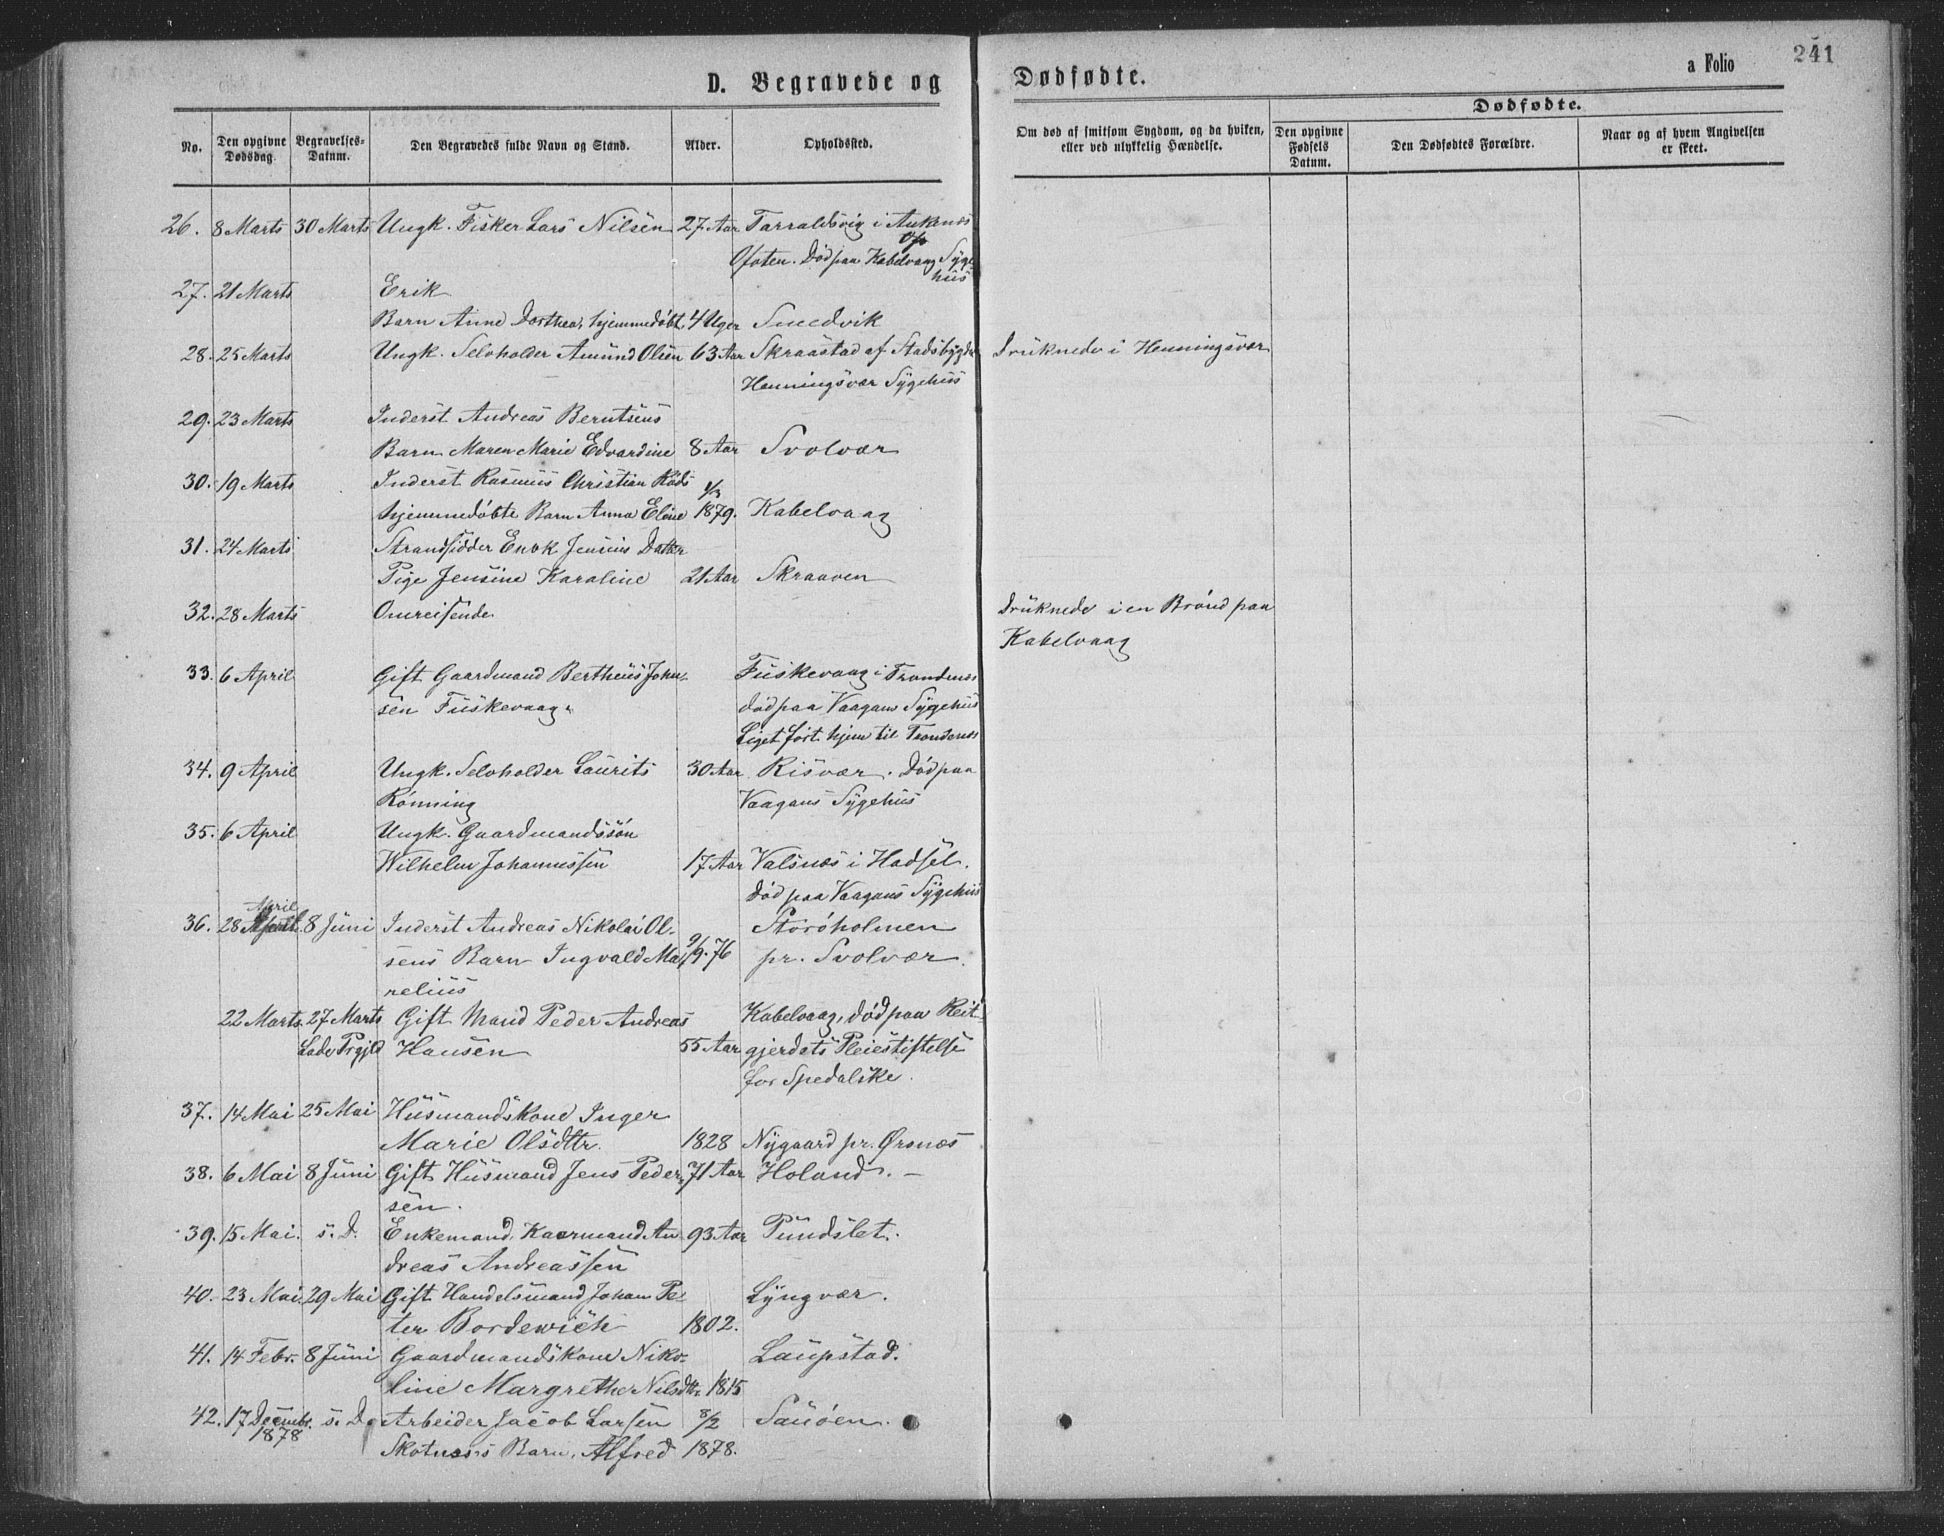 D. Begravede og Dødfødte.
a Folio 241
No.
Den opgivne Dødsdag.
Begravelses-Datum.
Den Begravedes fulde Navn og Stand.
Alder.
Opholdssted.
Om død af smitsom Sygdom, og da hvilken, eller ved ulykkelig Hændelse.
Dødfødte.
Den opgivne Fødsels Datum.
Den Dødfødtes Forældre.
Naar og af hvem Angivelsen er skeet.
26. 8 Marts 30 Marts Ungk. Fisker Lars Nilsen 27 Aar Tarraldsvig i Ankenæs
Ofoten. Død paa Kabelvaag Syge
hus
27. 21 Marts Erik
Barn Anne Dorthea, hjemmedøbt 4 Uger Smedvik
28. 25 Marts Ungk. Selvholder Amund Olsen 63 Aar Skraastad af Stadsbygden Druknede i Henningsvær
Henningsvær Sygehus
29. 23 Marts Inderst Andreas Berntsens
Barn Maren Marie Edvardine 8 Aar Svolvær
30. 19 Marts Inderst Rasmus Christian Røds 1/3
hjemmedøbte Barn Anna Eline 1879. Kabelvaag
31. 24 Marts Strandsidder Enok Jensens Datter
Pige Jensine Karoline 21 Aar Skraaven
32. 28 Marts Omreisende Druknede i en Brønd paa
Kabelvaag
33. 6 April Gift Gaardmand Bertheus John- Fuskevaag i Trondenæs
sen Fuskevaag. død paa Vaagans Sygehus
Liget ført hjem til Trondenæs
34. 9 April Ungk. Selvholder Laurits 30 Aar Risvær. Død paa
Rønning Vaagans Sygehus
35. 6 April Ungk. Gaardmandssøn
Wilhelm Johannessen 17 Aar Valsnæs i Hadsel.
død paa Vaagans Sygehus
April
36. 28 8 Juni Inderst Andreas Nikolai Ol- Storøholmen
sens Barn Ingvald Ma- 9/9.76 pr. Svolvær.
relius
22 Marts. 27 Marts Gift Mand Peder Andreas Kabelvaag, død paa Reit-
Lade Prgjld Hansen 55 Aar gjerdets Pleiestiftelse
for Spedalske.
37. 14 Mai 25 Mai Husmandskone Inger
Marie Olsdttr. 1828 Nygaard pr. Ørsnæs
38. 6 Mai 8 Juni Gift Husmand Jens Peder- 71 Aar Holand. –
sen.
39. 15 Mai. s. D. Enkemand, Kaarmand An- 93 Aar Pundslet.
dreas Andreassen
40. 23 Mai. 29 Mai Gift Handelsmand Johan Pe- Lyngvær.
ter Bordewich 1802.
41. 14 Febr. 8 Juni Gaardmandskone Niko- Laupstad.
line Margrethe Nilsdttr. 1815
42. 17 Decembr. s. D. Arbeider Jacob Larsen 8/2 Sauøen.
1878 Skotnæs's Barn, Alfred 1878.